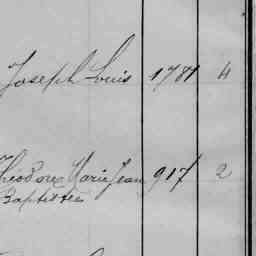 Joseph Louis 1781 4
Théodore Marie Jean 917 2
Baptiste